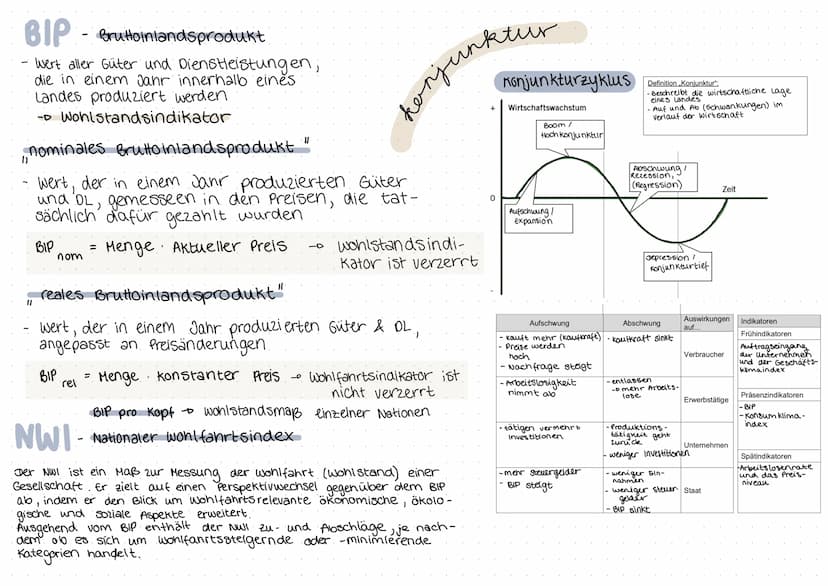 BIP - Bruttoinlandsprodukt
- Wert aller Güter und Dienstleistungen,
die in einem Jahr innerhalb eines
Landes produziert werden
-> Wohlstandsindikator
„nominales Bruttoinlandsprodukt"
- Wert, der in einem Jahr produzierten Güter
und DL, gemesseen in den Preisen, die tat-
sächlich dafür gezahlt wurden
BIP nom = Menge · Aktueller Preis -> Wohlstandsindi-
kator ist verzerrt
„reales Bruttoinlandsprodukt"
- Wert, der in einem Jahr produzierten Güter & DL,
angepasst an Preisänderungen
BIP rel = Menge · Konstanter Preis -> Wohlfahrtsindikator ist
nicht verzerrt
BIP pro Kopf -> Wohlstandsmaß einzelner Nationen
NWI - Nationaler Wohlfahrtsindex
Der NWI ist ein Maß zur Messung der Wohlfahrt (Wohlstand) einer
Gesellschaft. Er zielt auf einen Perspektivwechsel gegenüber dem BIP
ab, indem er den Blick um wohlfahrtsrelevante ökonomische, ökolo-
gische und soziale Aspekte erweitert.
Ausgehend vom BIP enthält der NWI zu- und Abschläge, je nach-
dem ob es sich um Wohlfahrtssteigernde oder -minimierende
Kategorien handelt.
Konjunktur
Konjunkturzyklus
Definition „Konjunktur":
- Beschreibt die wirtschaftliche Lage
eines Landes
- Auf und Ab (Schwankungen) im
Verlauf der Wirtschaft
+
Wirtschaftswachstum
Boom /
Hochkonjunktur
Abschwung /
Rezession,
(Regression)
Zeit
0
Aufschwung /
Expansion
Depression /
Konjunkturtief
-
Aufschwung
Abschwung
Auswirkungen
auf...
- kauft mehr (Kaufkraft)
- Preise werden
hoch
- Nachfrage steigt
- Kaufkraft sinkt
Verbraucher
- Arbeitslosigkeit
nimmt ab
- entlassen
-> mehr Arbeits-
lose
Erwerbstätige
- tätigen vermehrt
Investitionen
- Produktions-
tätigkeit geht
zurück
- weniger Investitionen
Unternehmen
- mehr Steuergelder
- BIP steigt
- weniger Ein-
nahmen
- weniger Steuer
gelder
- BIP sinkt
Staat
Indikatoren
Frühindikatoren
Auftragseingang
der Unternehmen
und der Geschäfts-
klimaindex
Präsenzindikatoren
- BIP
- Konsumklima-
index
Spätindikatoren
- Arbeitslosenrate
und das Preis-
niveau